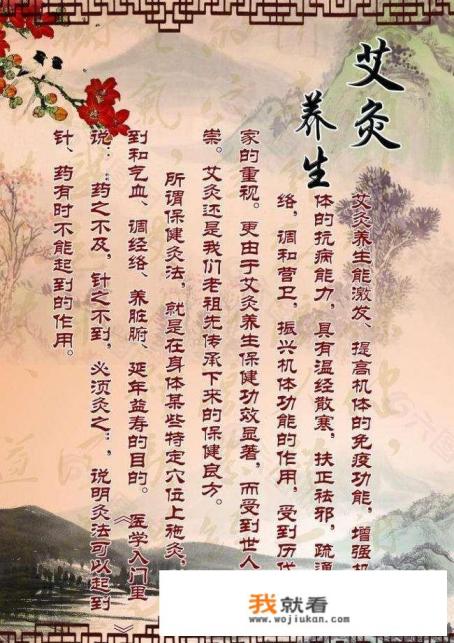 艾灸
养生
艾灸养生能激发、提高机体的免疫功能，增强机
体的抗病能力，具有温经散寒，扶正祛邪，疏通
络，调和营卫，振兴机体功能的作用，受到历代
家的重视。更由于艾灸养生保健功效显著，而受到世人
崇。艾灸还是我们老祖先传承下来的保健良方。
所谓保健灸法，就是在身体某些特定穴位上施灸，
到和气血、调经络、养脏腑、延年益寿的目的。《医学入门里》
说：药之不及，针之不到，必须灸之…，说明灸法可以起到
针、药有时不能起到的作用。
我就看
www.wojiukan.com